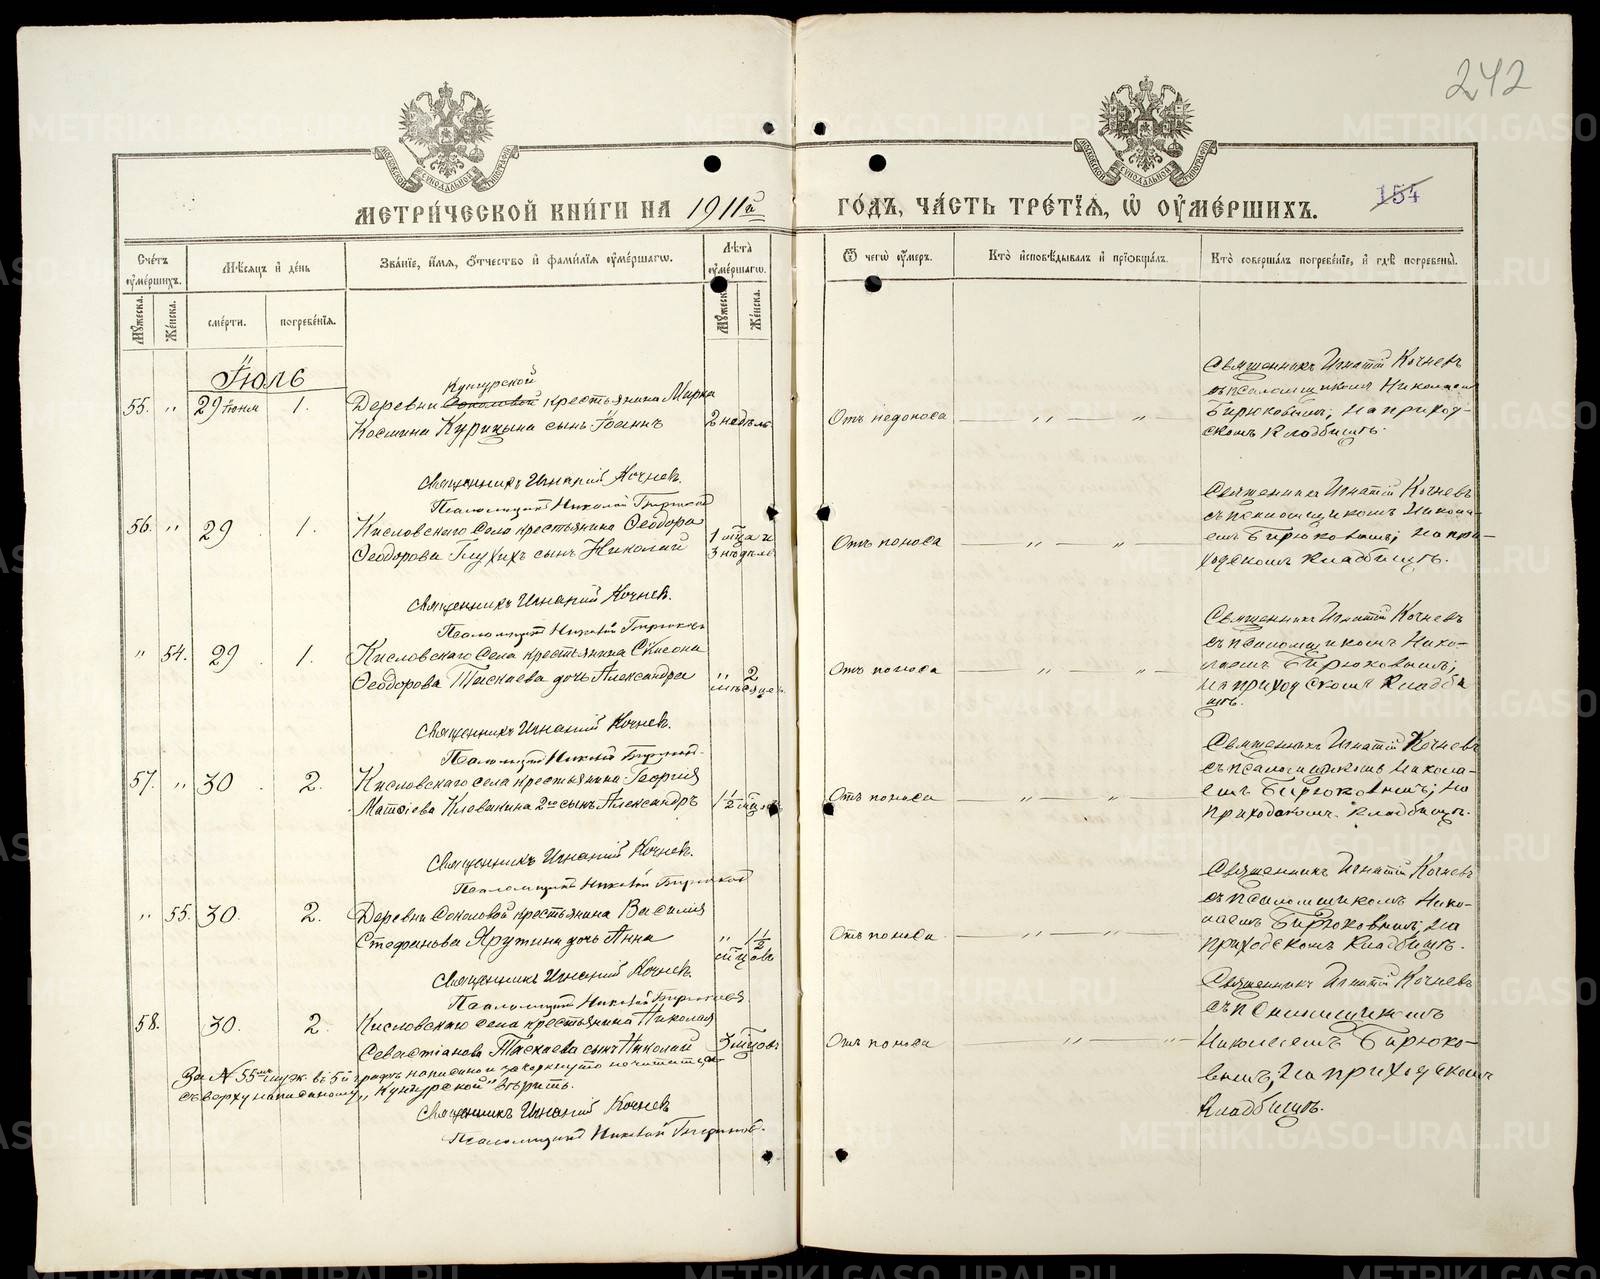 242
МЕТРИ́ЧЕСКОЙ КНИ́ГИ НА 1911й
ГО́ДЪ, ЧА́СТЬ ТРЕ́ТЇѦ, Ѡ҆ ОУ҆МЕ́РШИХЪ.
154
Сче́тъ оу҆ме́ршихъ.
Мѣ́сѧцъ и҆ де́нь
Зва́нїе, и҆́мѧ, ѻ҆́тчество и҆ фами́лїѧ оу҆ме́ршагѡ.
Лѣ́та оу҆ме́ршагѡ.
Ѿ чегѡ̀ оу҆́меръ.
Кто̀ и҆сповѣ́дывалъ и҆ прїѡбща́лъ.
Кто̀ соверша́лъ погребе́нїе, и҆ гдѣ̀ погребены̀.
Мꙋ́жеска.
Же́нска.
сме́рти.
погребе́нїѧ.
Мꙋ́жеск
Же́нска.
Іюль
Кунгурской
55. " 29 іюня 1. Деревни Соколовой крестьянина Мирка
Космина Курицына сынъ Іоаннъ 2 недѣль
Отъ недоноса " "
Священникъ Игнатій Кочневъ
съ псаломщикомъ Николаемъ
Бирюковымъ; на приход-
скомъ кладбищѣ.
Священникъ Игнатій Кочнев.
Псаломщикъ Николай Бирюков
56. " 29 1. Кисловскаго Села крестьянина Ѳеодора
Ѳеодорова Глухихъ сынъ Николай 1 мца и 3 недѣль
Отъ поноса " "
Священникъ Игнатій Кочневъ
съ псаломщикомъ Никола-
емъ Бирюковымъ; на при-
ходскомъ кладбищѣ.
Священникъ Игнатій Кочнев.
Псаломщикъ Николай Бирюков
" 54. 29 1. Кисловскаго Села крестьянина Симеона
Ѳеодорова Таскаева дочь Александра " 2 мѣсяцев
Отъ поноса " "
Священникъ Игнатій Кочневъ
съ псаломщикомъ Нико-
лаемъ Бирюковымъ;
на приходскомъ кладби
щѣ.
Священникъ Игнатій Кочнев.
Псаломщикъ Николай Бирюков.
57. " 30 2. Кисловскаго села крестьянина Георгія
Матѳіева Клевакина 2й сынъ Александръ 1½ мцов
Отъ поноса " "
Священникъ Игнатій Кочневъ
съ псаломщикомъ Никола-
емъ Бирюковымъ; на
приходскомъ кладбищѣ.
Священникъ Игнатій Кочнев.
Псаломщикъ Николай Бирюков
" 55. 30. 2. Деревни Соколовой крестьянина Василія
Стефанова Ярутина дочь Анна " 1½ мцовъ
Отъ поноса " "
Священникъ Игнатій Кочневъ
съ псаломщикомъ Нико-
лаемъ Бирюковымъ; на
приходскомъ кладбищѣ.
Священникъ Игнатій Кочнев.
Псаломщикъ Николай Бирюков.
58. 30. 2 Кисловскаго села крестьянина Николая
Севастіанова Таскаева сынъ Николай 3 мцовъ
Отъ поноса " "
Священникъ Игнатій Кочневъ
съ псаломщикомъ
Николаемъ Бирюко-
вымъ; на приходскомъ
кладбищѣ.
За № 55мъ муж. въ 5й графѣ написано и зачеркнуто почитать
сверху написанному „Кунгурской" вѣрить.
Священникъ Игнатій Кочнев
Псаломщикъ Николай Бирюков.
METRIKI.GASO-URAL.RU